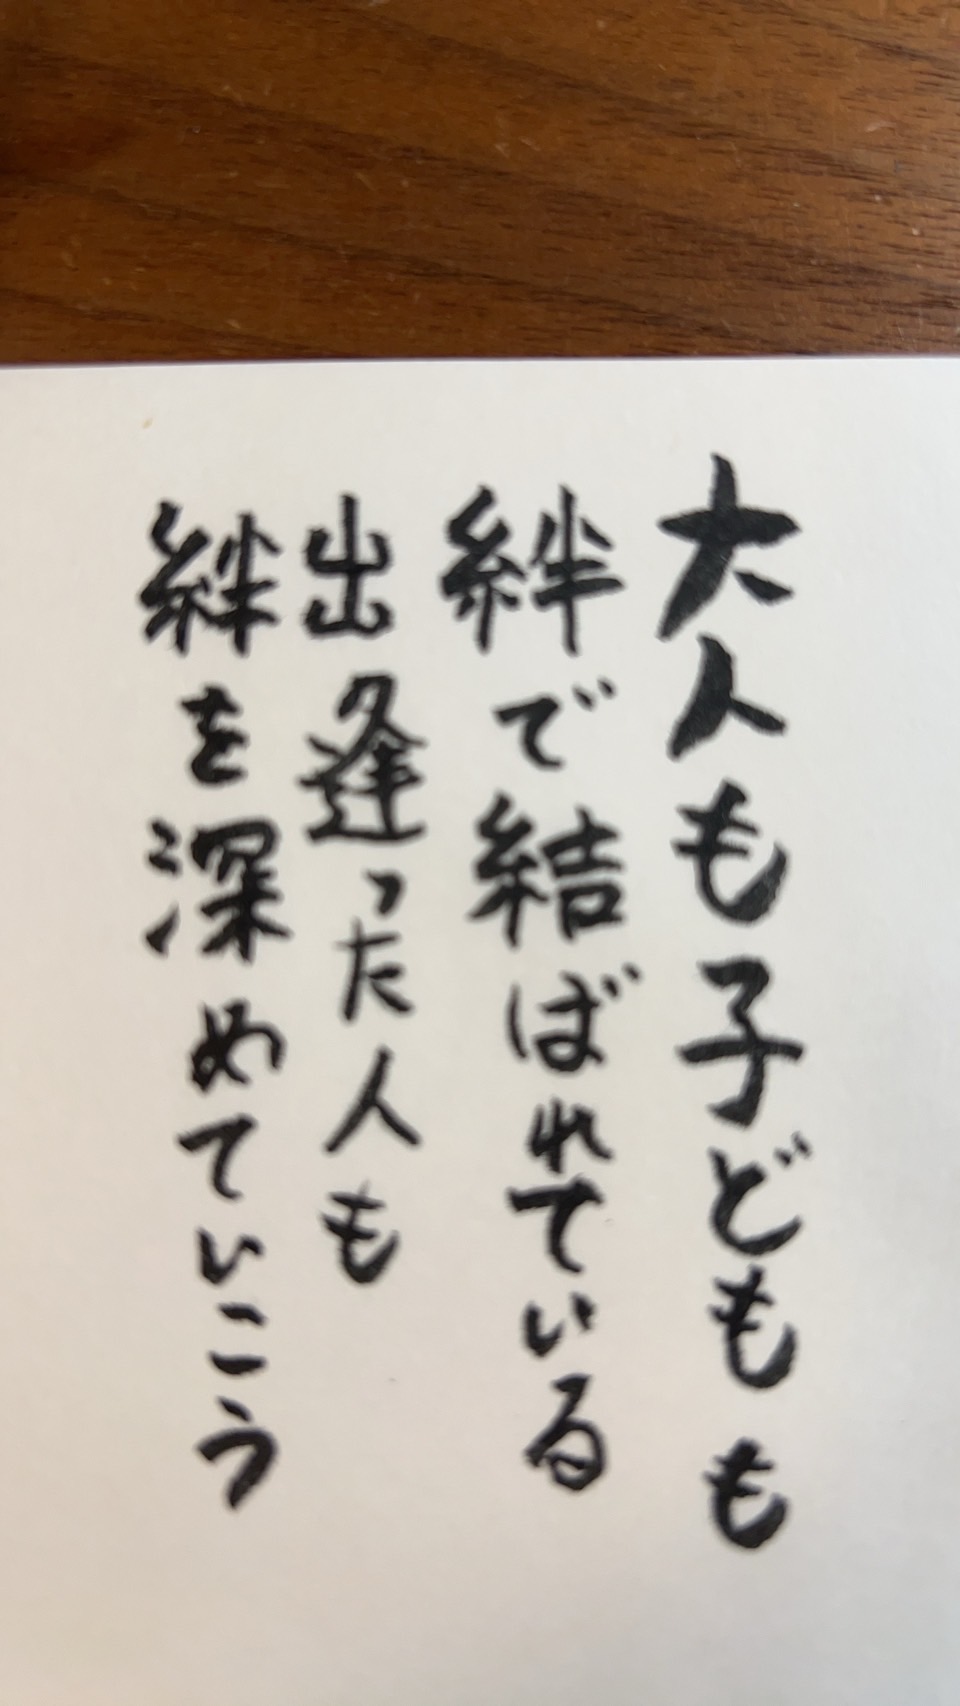 大人も子どもも
絆で結ばれている
出逢った人も
絆を深めていこう